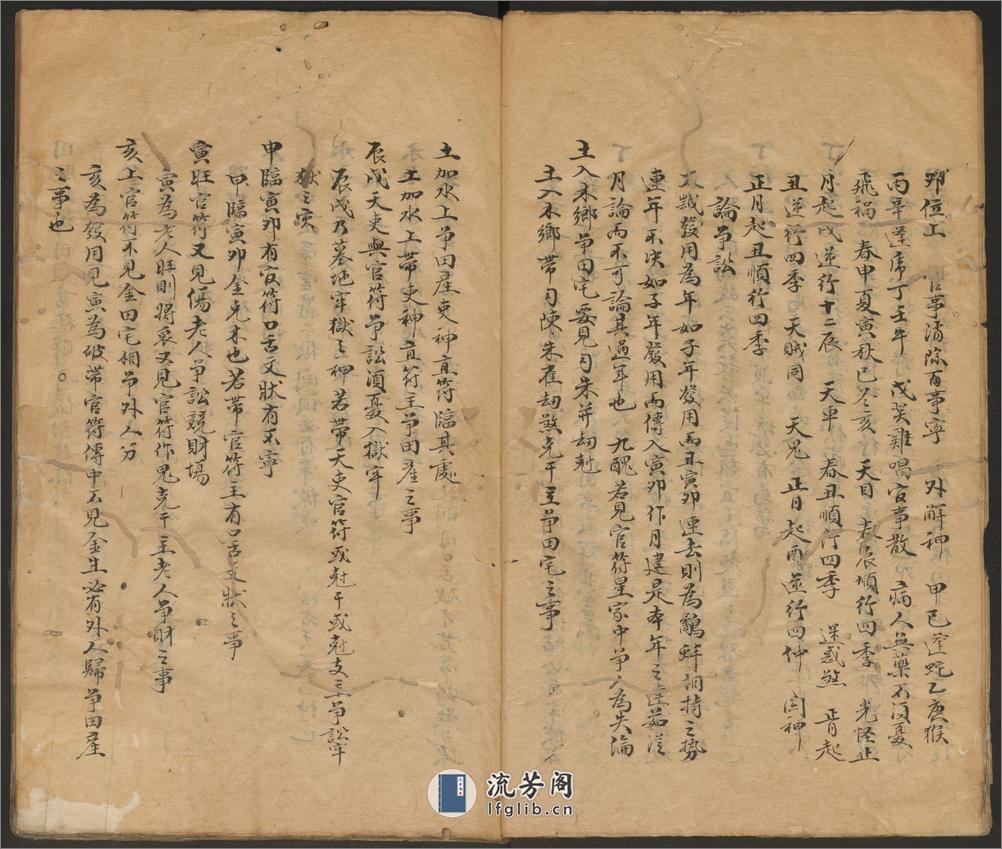 卯位上 官事消除百事寧 外解神 甲己逢蛇乙庚猴
丙辛逢虎丁壬午 戊癸雞唱官事散 病人無藥不闷憂
飛禍 春申夏寅秋巳冬亥 天目 春辰順行四季 光怪止
月起戌逆行十二辰 天車 春丑順行四季 迷惑煞 正月起
丑逆行四季 天賊同 天鬼 正月起酉逆行四仲 関神
正月起丑順行四季
論爭訟
太歲發用為年如子年發用而丑寅卯連去則為鷸蚌相持之勢
連年不决如子年發用而傳入寅卯作月建是本年之
月論而不可論其過年也 九醜若見官符星家中爭
土入水鄉爭田宅 見勾朱并刼尅
土入水鄉帶勾陳朱雀刼煞克干主爭田宅之事
土加水上爭田産吏神直符臨其處
土加水上帶吏神直符主爭田産之事
辰戌天吏與官符爭訟湏憂入獄牢
辰戌乃墓地牢獄之神若帶天吏官符或尅干或尅支主爭訟牢
獄之災
申臨寅卯有官符口舌文狀有不寧
申臨寅卯金克木也若帶官符主有口舌文狀之事
寅旺官符又見傷老人爭訟競財場
寅為老人旺則將衰又見官符作鬼克干主老人爭財之事
亥上官符不見金田宅相爭外人分
亥為發用見寅為破帶官符傳中不見金生必有外人歸爭田産
之事也
流芳阁
lfglib.cn